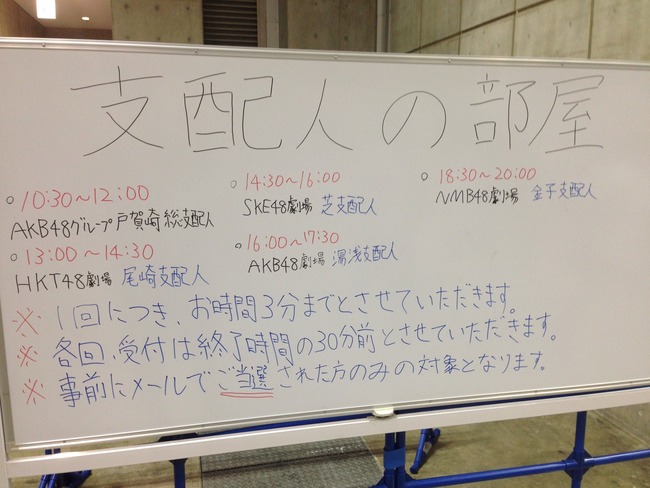 支配人の部屋
○10:30〜12:00
AKB48グループ戸賀崎総支配人
○13:00〜14:30
HKT48劇場 尾崎支配人
○14:30〜16:00
SKE48劇場 芝支配人
○16:00〜17:30
AKB48劇場 湯浅支配人
○18:30〜20:00
NMB48劇場 金子支配人
※1回につき、お時間3分までとさせていただきます。
※各回、受付は終了時間の30分前とさせていただきます。
※事前にメールでご当選された方のみの対象となります。